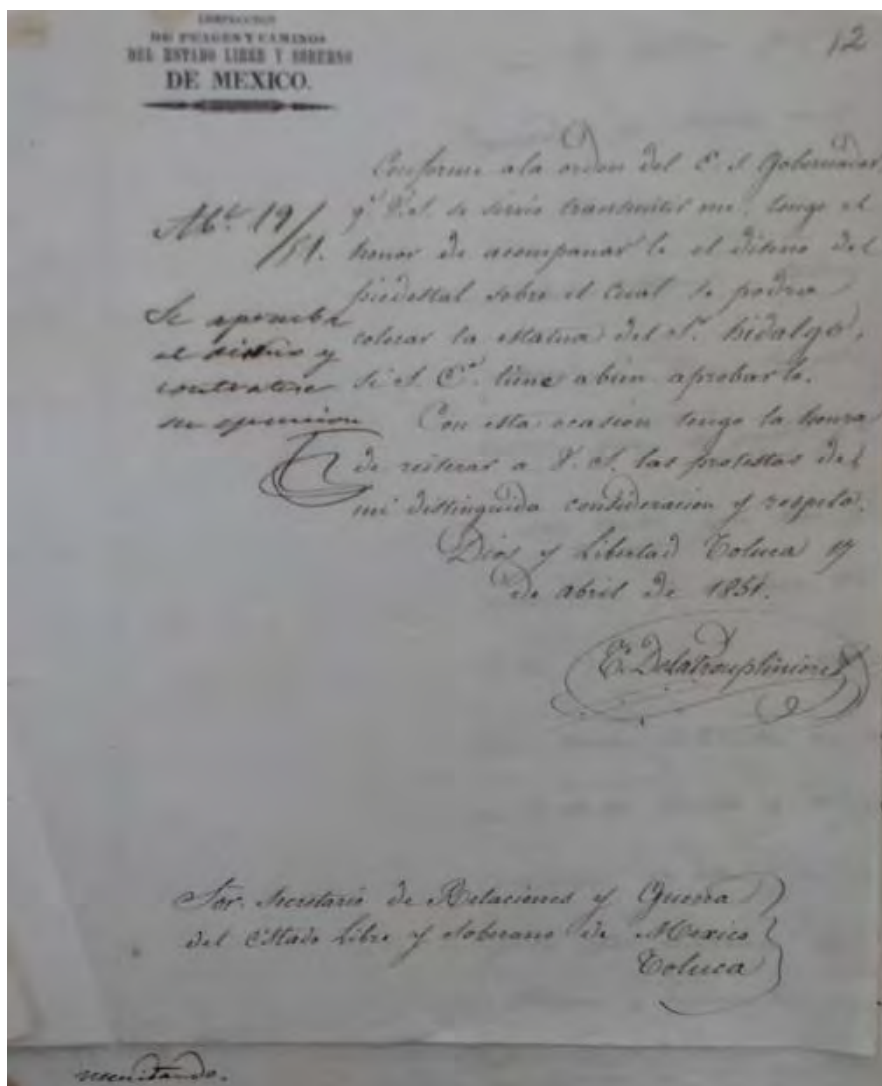 INSPECCION
DE PEAGES Y CAMINOS
DEL ESTADO LIBRE Y SOBERNO
DE MEXICO.
12
Conforme a la orden del E. S. Gobernador,
qe. V.S. se sirvio transmitir me, tengo el
honor de acompanar le el diseno del
piedestal sobre el cual se podra
colocar la estatua del Sr. hidalgo,
si S. Ea. tiene abien aprobarle.
Con esta ocasion tengo la honra
de reiterar a V. S. las protestas de
mi distinguida consideracion y respeto.
Dios y libertad Toluca 17
de abril de 1851.
Abl. 19/51.
Se aprueba
el diseño y
contratese
su ejecucion
Sor. Secretario de Relaciones y Guerra
del Estado libre y Soberano de Mexico
Toluca